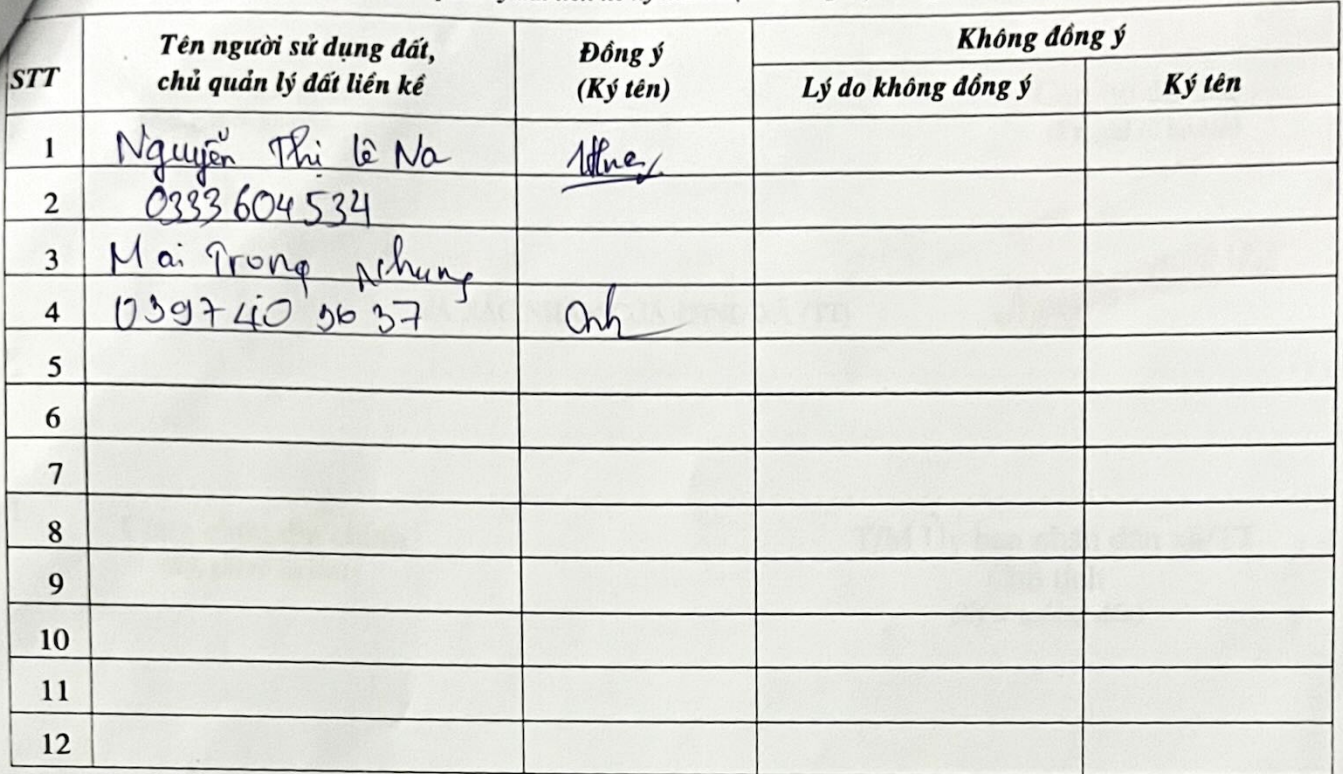 STT
Tên người sử dụng đất,
chủ quản lý đất liền kề
Đồng ý
(Ký tên)
Không đồng ý
Lý do không đồng ý
Ký tên
1 Nguyễn Thị Lê Na
2 0333604534
3 Mai Trong Nhung
4 0397 40 9637
5
6
7
8
9
10
11
12